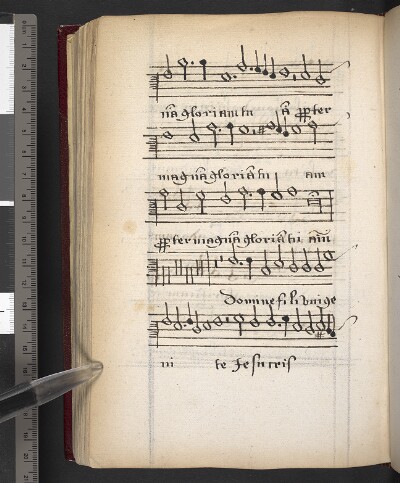 nã gloriam tu ã ꝓpter
magnã gloriã tu am
ꝓpter magnã gloriã tu am
Domine fili vnige
ni te Jesu cris